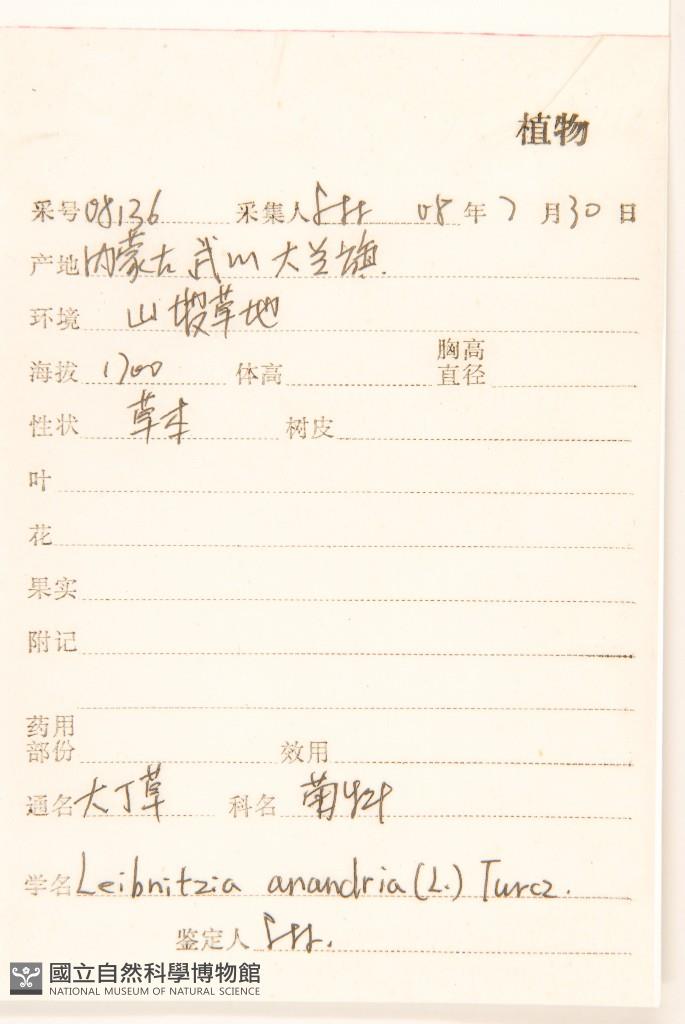 植物
采号 08136 采集人 08 年 7 月 30 日
产地 内蒙古 武川 大兰旗
环境 山坡草地
海拔 1700 体高 胸高直径
性状 草本 树皮
叶
花
果实
附记
药用部份 效用
通名 大丁草 科名 菊科
学名 Leibnitzia anandria (L.) Turcz.
鉴定人
國立自然科學博物館
NATIONAL MUSEUM OF NATURAL SCIENCE